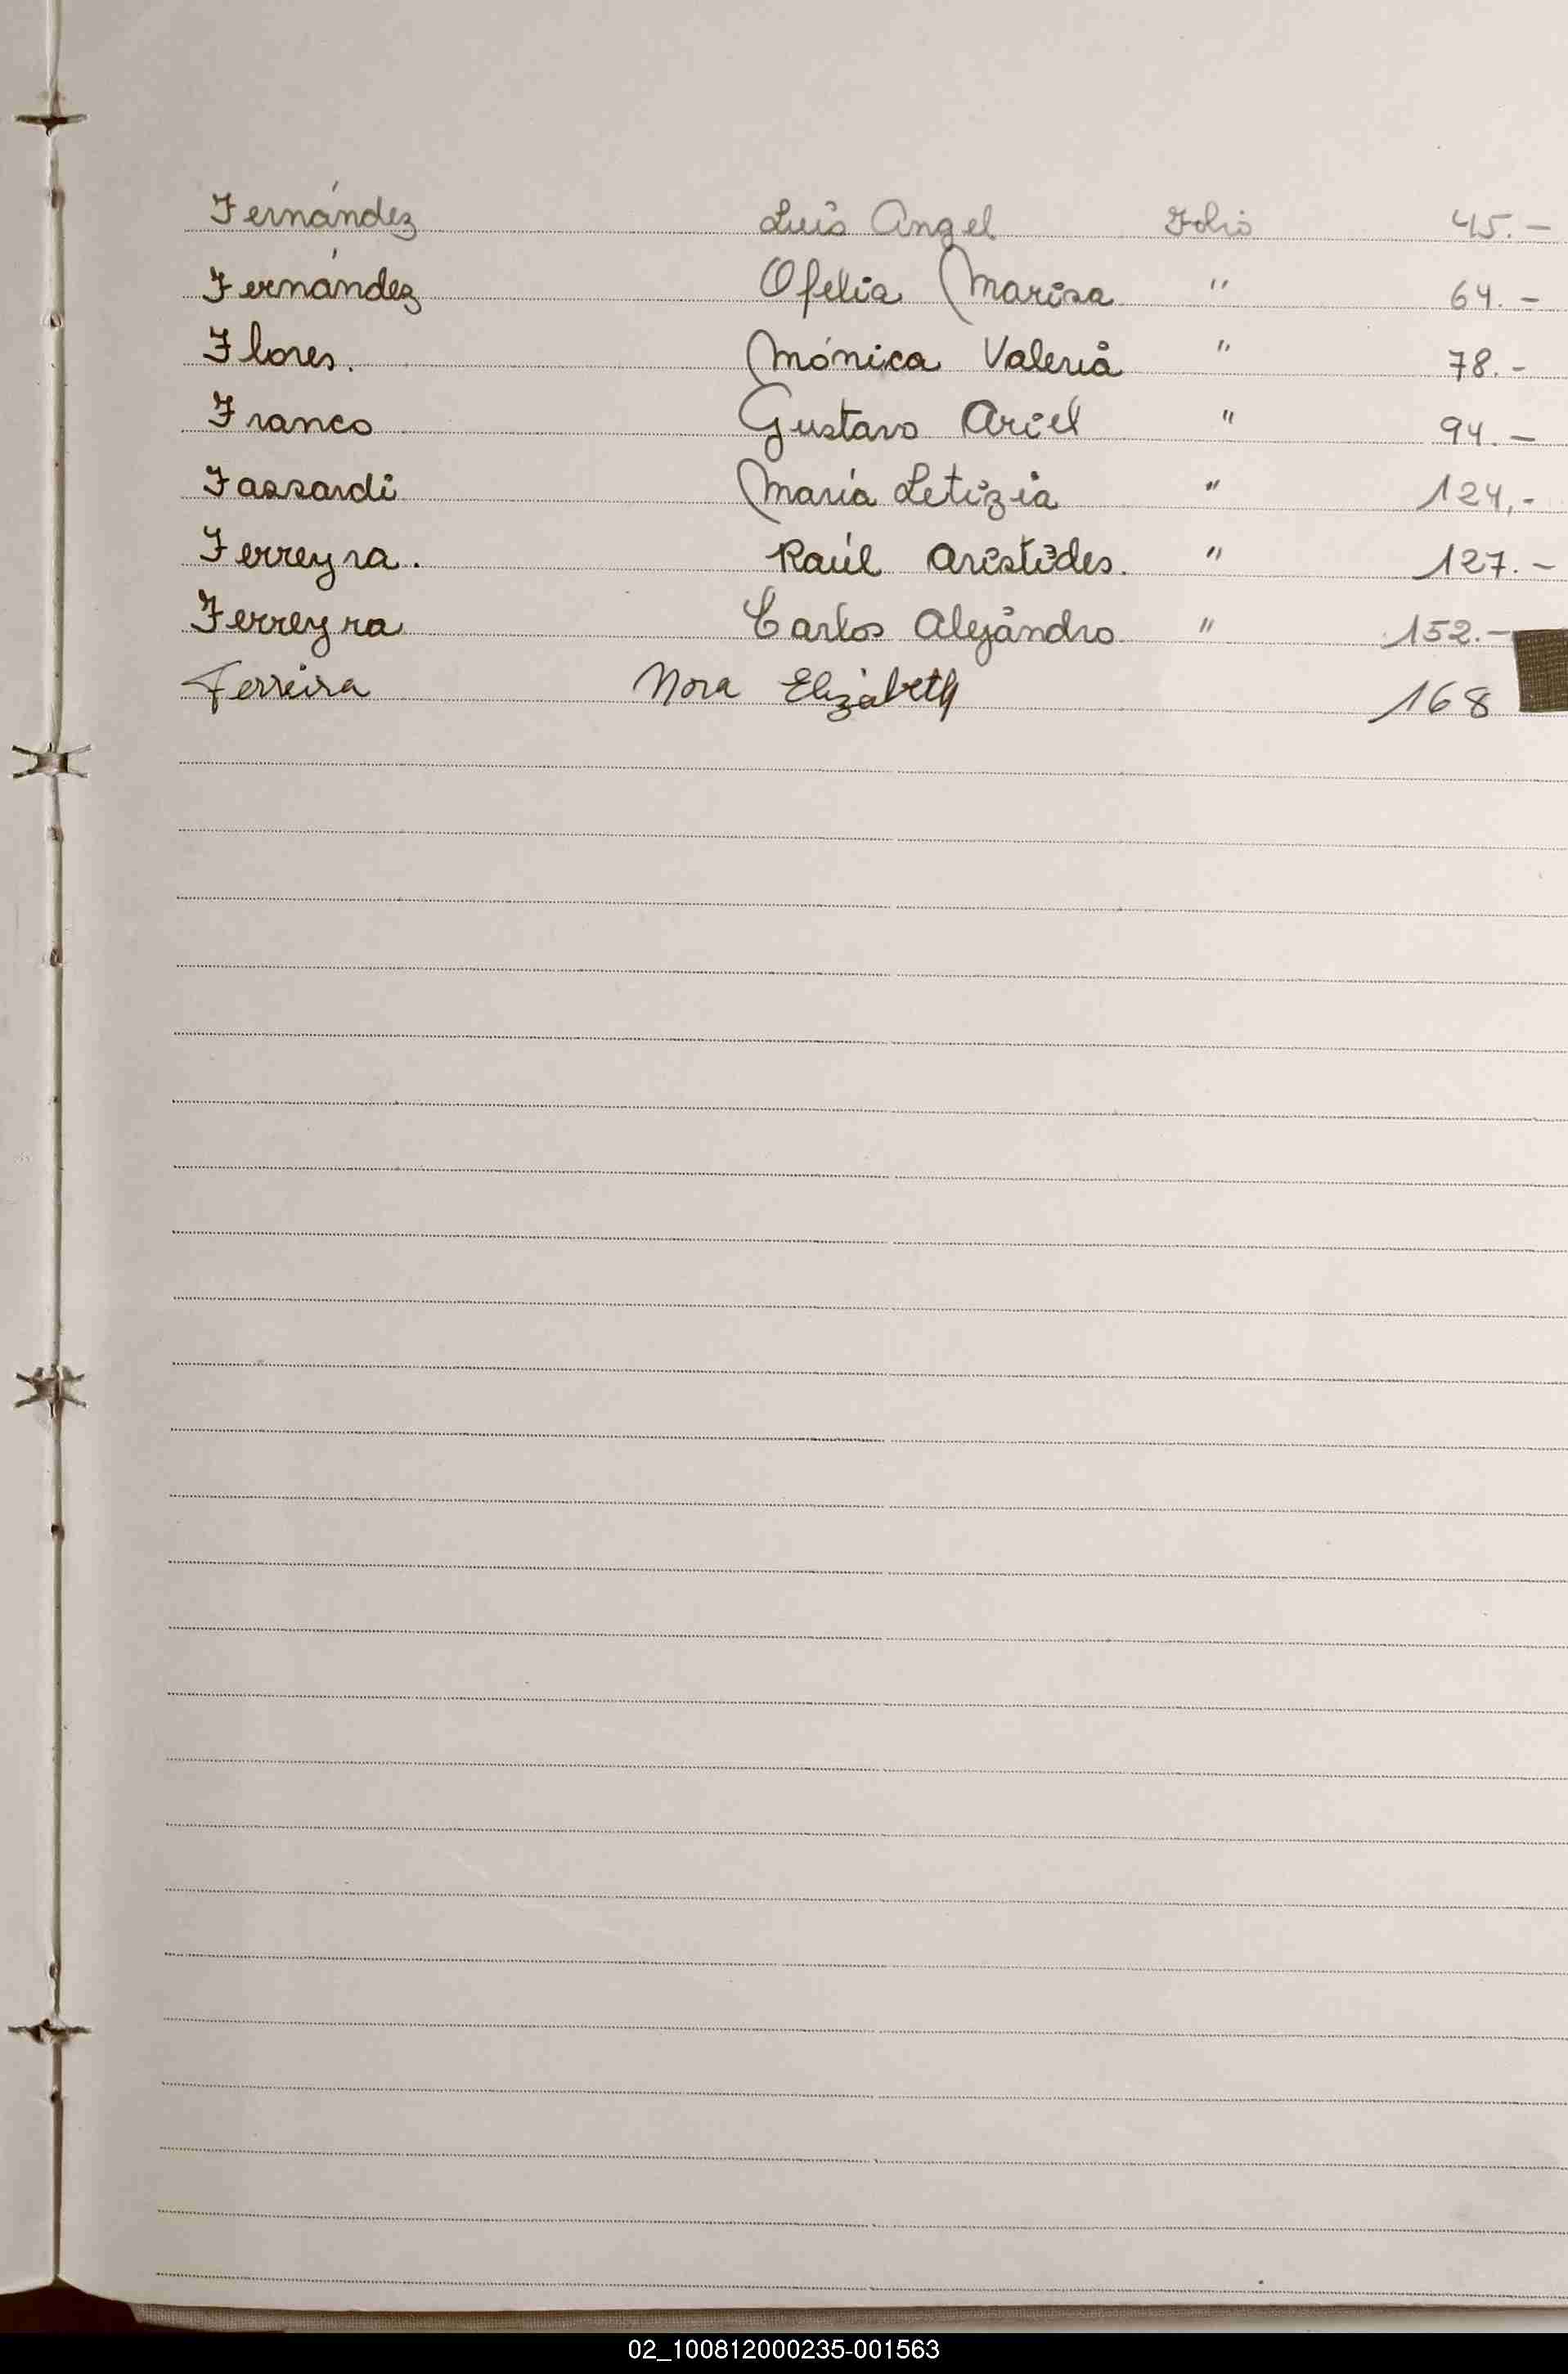 Fernández Luis Angel Folio 45.-
Fernández Ofelia Marisa " 64.-
Flores. Mónica Valeria " 78.-
Franco Gustavo Ariel " 94.-
Fassardi María Letizia " 124,-
Ferreyra. Raúl Aristides. " 127.-
Ferreyra Carlos Alejandro " 152.-
Ferreira Nora Elizabeth 168
02_100812000235-001563